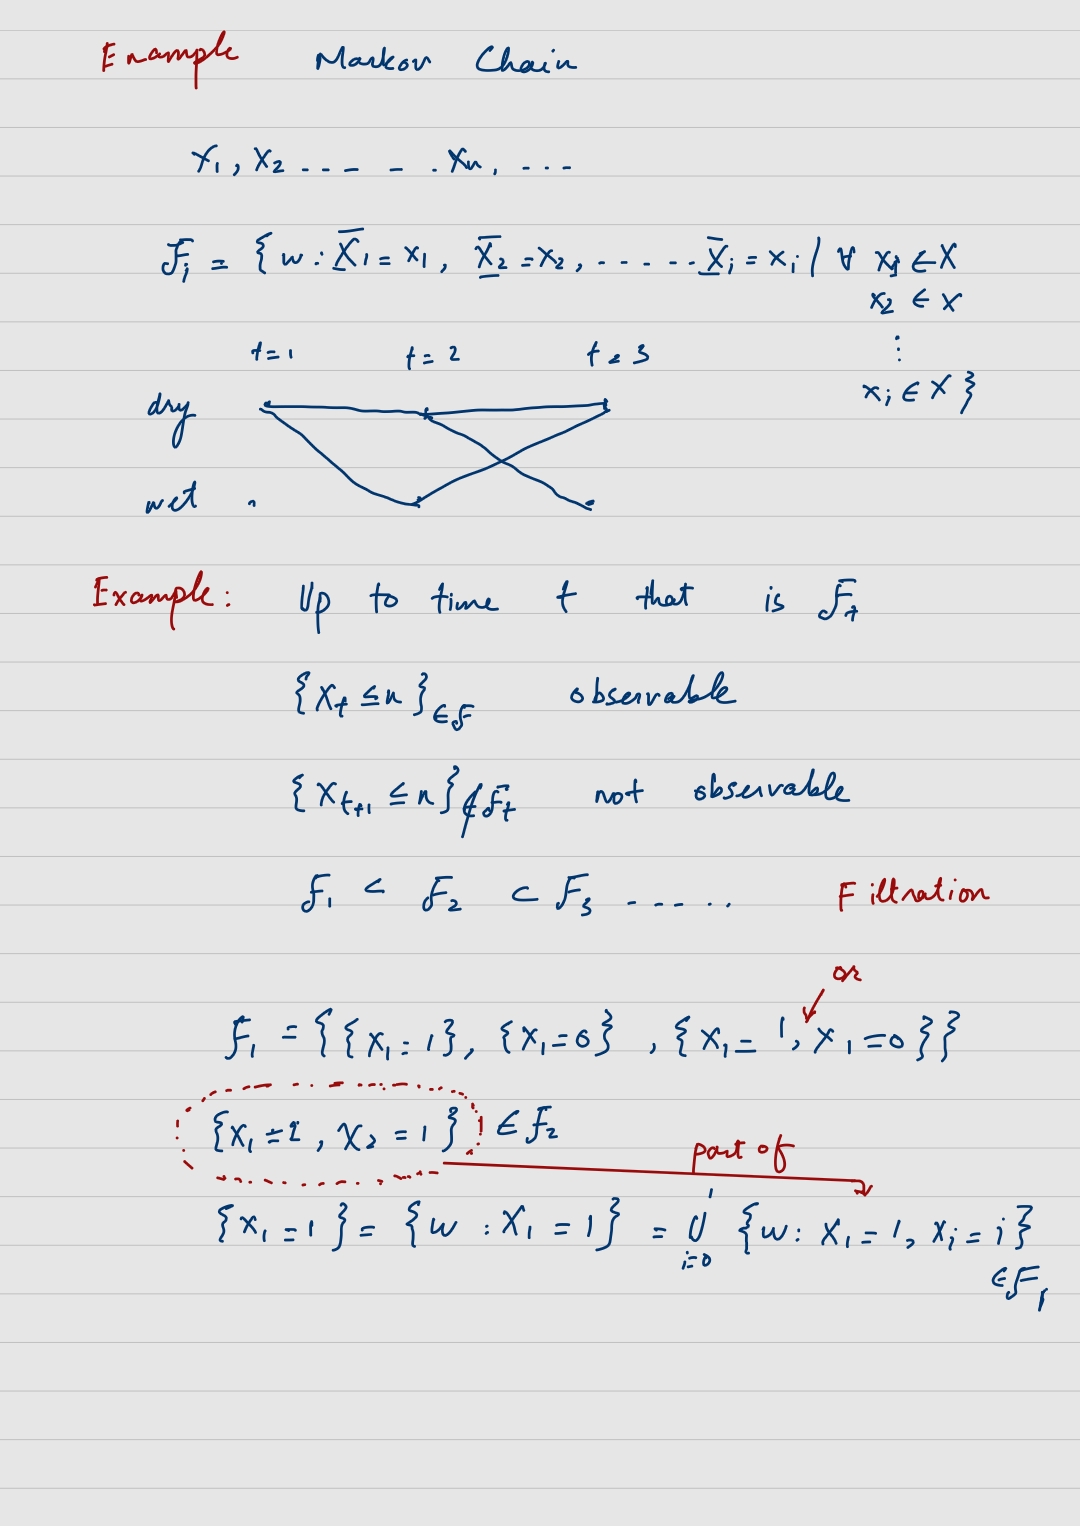 Example Markov Chain
X₁, X₂ ---- - . Xn, ....
ℱᵢ = { w : X̅₁ = x₁, X̅₂ = x₂, ...... X̅ᵢ = xᵢ | ∀ x₁ ∈ X
x₂ ∈ X
⋮
xᵢ ∈ X }
t=1 t=2 t=3
dry
wet
Example: Up to time t that is ℱₜ
{Xₜ ≤ n} ∈ ℱ observable
{Xₜ₊₁ ≤ n} ∉ ℱₜ not observable
ℱ₁ < ℱ₂ ⊂ ℱ₃ ...... Filtration
or
ℱ₁ = { {X₁ = 1}, {X₁ = 0}, {X₁ = 1, X₁ = 0} }
{X₁ = 2, X₂ = 1} ∈ ℱ₂
part of
{X₁ = 1} = {w : X₁ = 1} = ∪¹ᵢ₌₀ {w : X₁ = 1, Xᵢ = i}
∈ ℱ₁